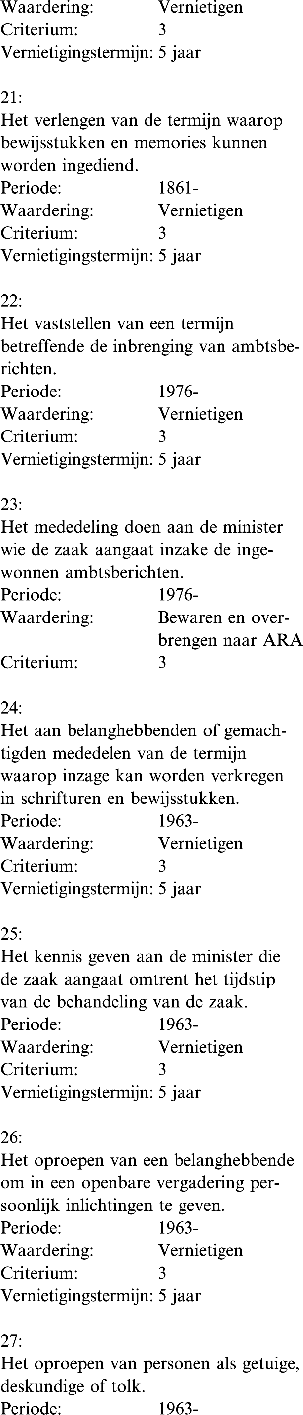 Waardering: Vernietigen
Criterium: 3
Vernietigingstermijn: 5 jaar
21:
Het verlengen van de termijn waarop
bewijsstukken en memories kunnen
worden ingediend.
Periode: 1861-
Waardering: Vernietigen
Criterium: 3
Vernietigingstermijn: 5 jaar
22:
Het vaststellen van een termijn
betreffende de inbrenging van ambtsbe-
richten.
Periode: 1976-
Waardering: Vernietigen
Criterium: 3
Vernietigingstermijn: 5 jaar
23:
Het mededeling doen aan de minister
wie de zaak aangaat inzake de inge-
wonnen ambtsberichten.
Periode: 1976-
Waardering: Bewaren en over-
brengen naar ARA
Criterium: 3
24:
Het aan belanghebbenden of gemach-
tigden mededelen van de termijn
waarop inzage kan worden verkregen
in schrifturen en bewijsstukken.
Periode: 1963-
Waardering: Vernietigen
Criterium: 3
Vernietigingstermijn: 5 jaar
25:
Het kennis geven aan de minister die
de zaak aangaat omtrent het tijdstip
van de behandeling van de zaak.
Periode: 1963-
Waardering: Vernietigen
Criterium: 3
Vernietigingstermijn: 5 jaar
26:
Het oproepen van een belanghebbende
om in een openbare vergadering per-
soonlijk inlichtingen te geven.
Periode: 1963-
Waardering: Vernietigen
Criterium: 3
Vernietigingstermijn: 5 jaar
27:
Het oproepen van personen als getuige,
deskundige of tolk.
Periode: 1963-